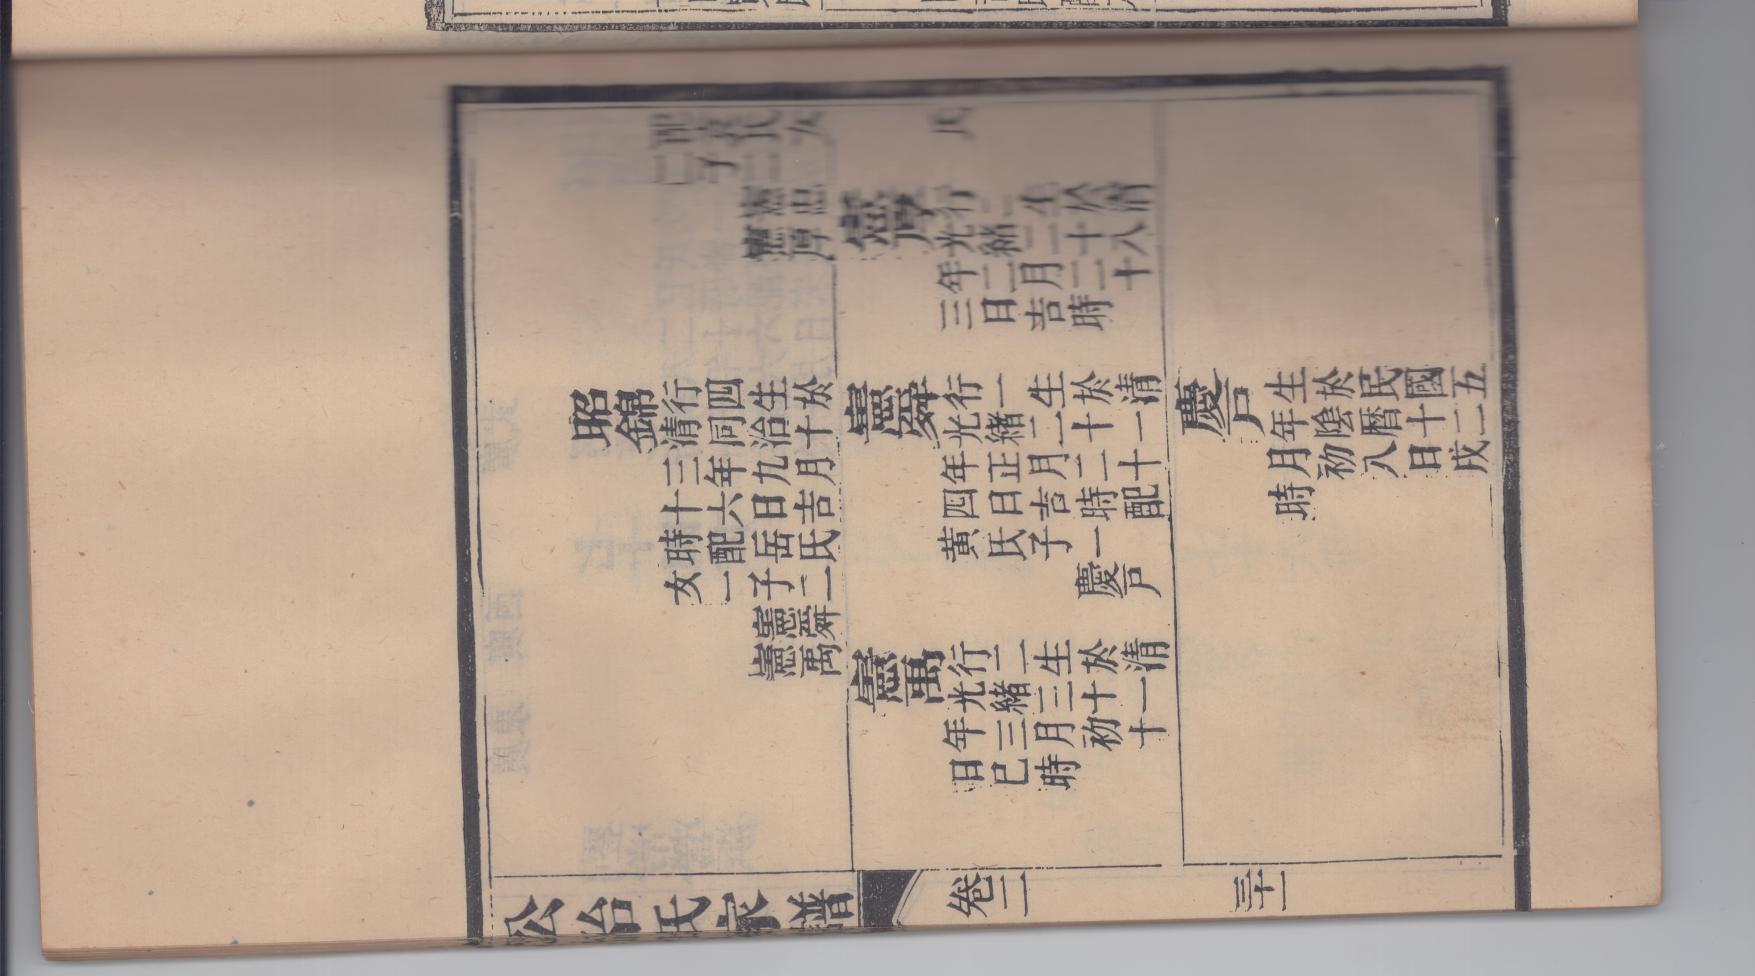 氏
憲忠
憲厚
憲厚
行二生於清
光緒二十八
年二月二十
三日吉時
昭錦
行四生於
清同治十
三年九月
十六日吉
時配岳氏
女一子二
憲舜
憲禹
憲舜
行一生於清
光緒二十一
年正月二十
四日吉時配
黃氏子一
慶戸
慶戸
生於民國五
年陰曆十二
月初八日戌
時
憲禹
行二生於清
光緒三十一
年三月初十
日巳時
公冶氏家譜 卷二 三十一